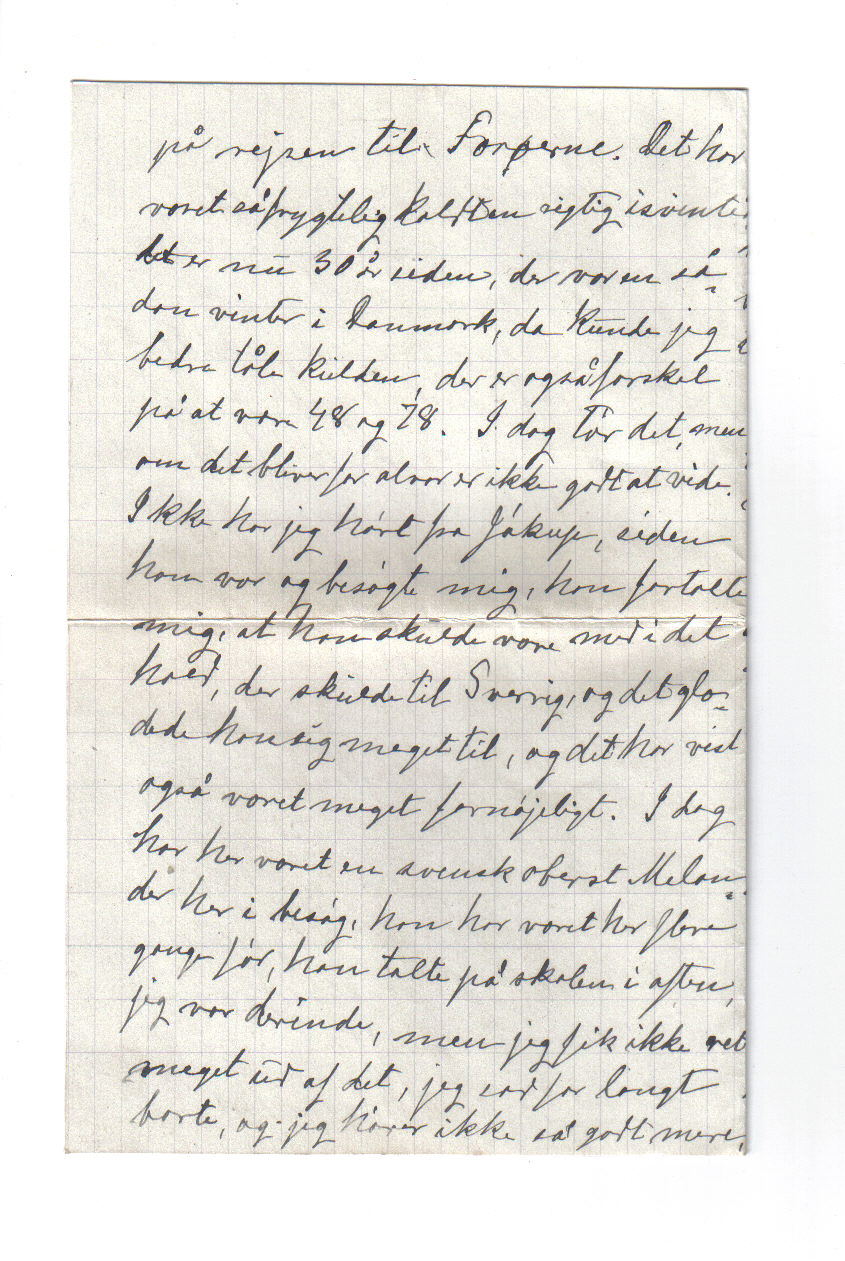 på rejsen til Færøerne. Det har
været så frygtelig koldt en rigtig isvinter
det er nu 30 år siden, der var en så-
dan vinter i Danmark, da kunde jeg
bedre tåle kulden, der er også forskel
på at være 48 og 78. I dag tør det, men
om det bliver for alvor er ikke godt at vide.
Ikke har jeg hørt fra Jákup, siden
han var og besøgte mig, han fortalte
mig, at han skulde være med i det
hold, der skulde til Sverrig, og det glæ-
dede han sig meget til, og det har vist
også været meget fornøjeligt. I dag
har her været en svensk oberst Melan-
der her i besøg, han har været her flere
gange før, han talte på skolen i aften,
jeg var derinde, men jeg fik ikke ret
meget ud af det, jeg sad for langt
borte, og jeg hører ikke så godt mere,